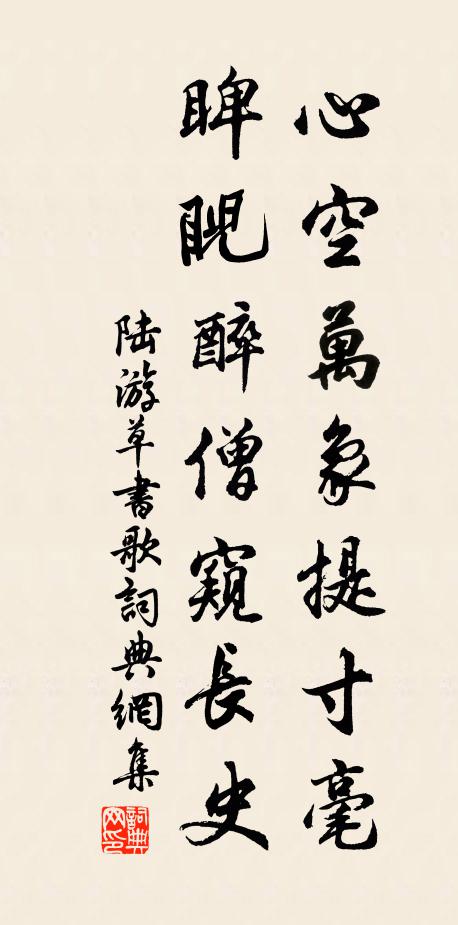 心空萬象提寸毫
睥睨醉僧窺長史
陆游草書歌詞典網集
詞典
网印